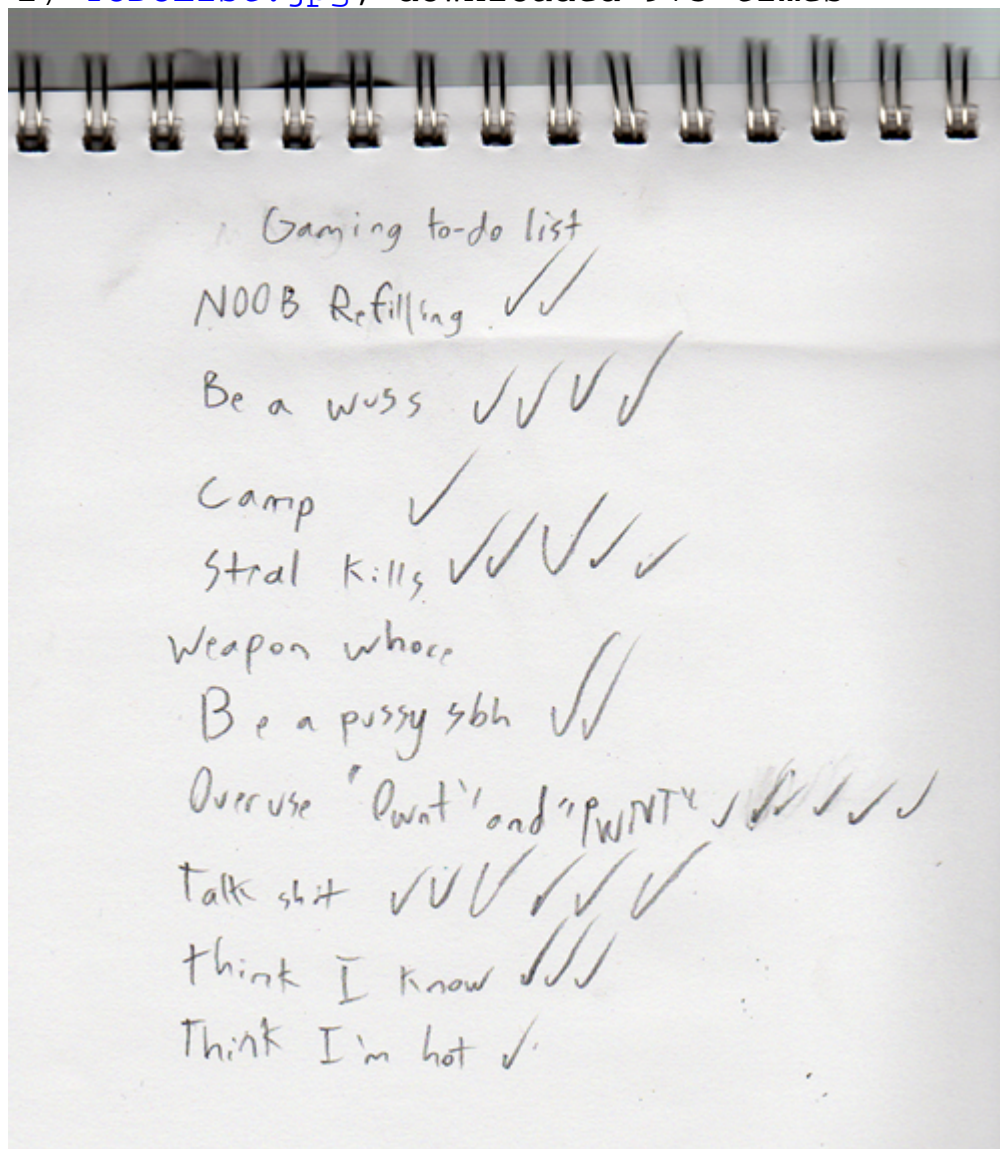 Gaming to-do list
NOOB Refilling ✓✓
Be a wuss ✓✓✓✓
Camp ✓
Steal kills ✓✓✓✓✓
Weapon whore
Be a pussy sbh ✓✓
Overuse "Pwnt" and "PWNT" ✓✓✓✓✓✓
Talk shit ✓✓✓✓✓✓
think I know ✓✓✓
Think I'm hot ✓